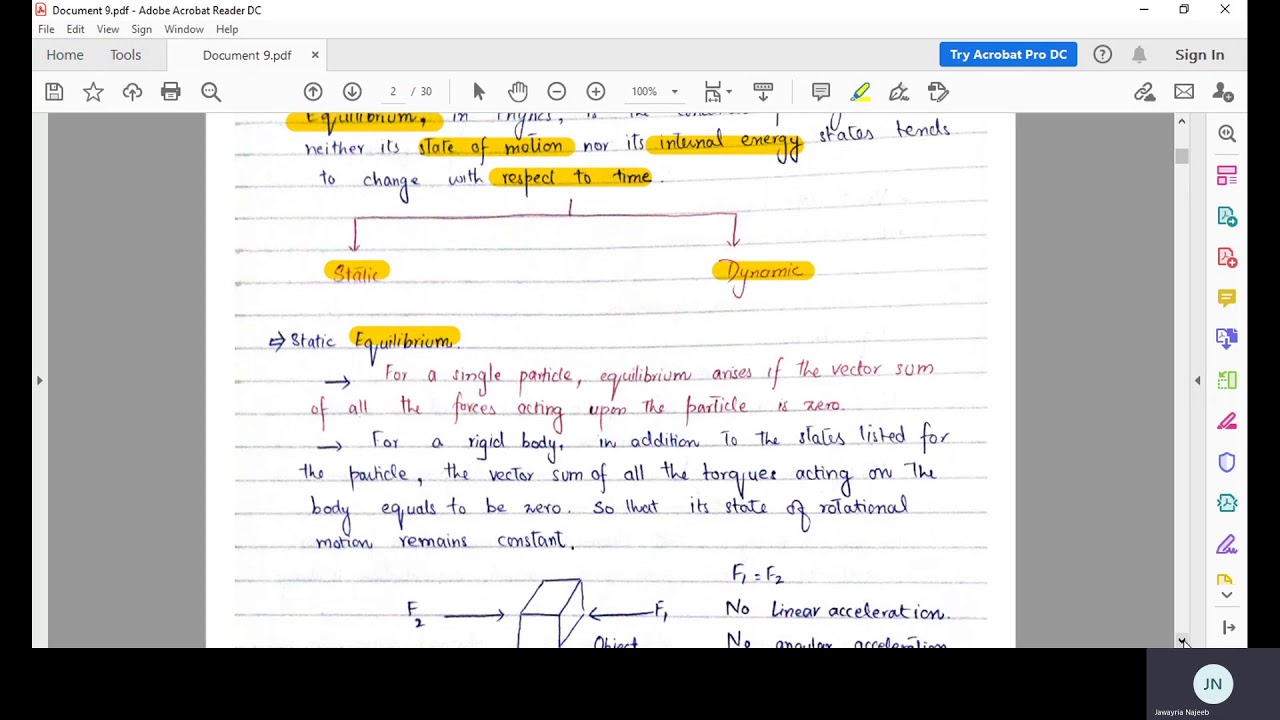 Document 9.pdf - Adobe Acrobat Reader DC
File Edit View Sign Window Help
Home Tools Document 9.pdf × Try Acrobat Pro DC Sign In
2 / 30 100%
Equilibrium, in Physics, is the
neither its state of motion nor its internal energy states tends
to change with respect to time.
Static Dynamic
⇒ Static Equilibrium.
→ For a single particle, equilibrium arises if the vector sum
of all the forces acting upon the particle is zero.
→ For a rigid body, in addition to the states listed for
the particle, the vector sum of all the torques acting on the
body equals to be zero. So that its state of rotational
motion remains constant.
F₁ = F₂
F₂ F₁ No linear acceleration.
Object No angular acceleration
JN
Jawayria Najeeb